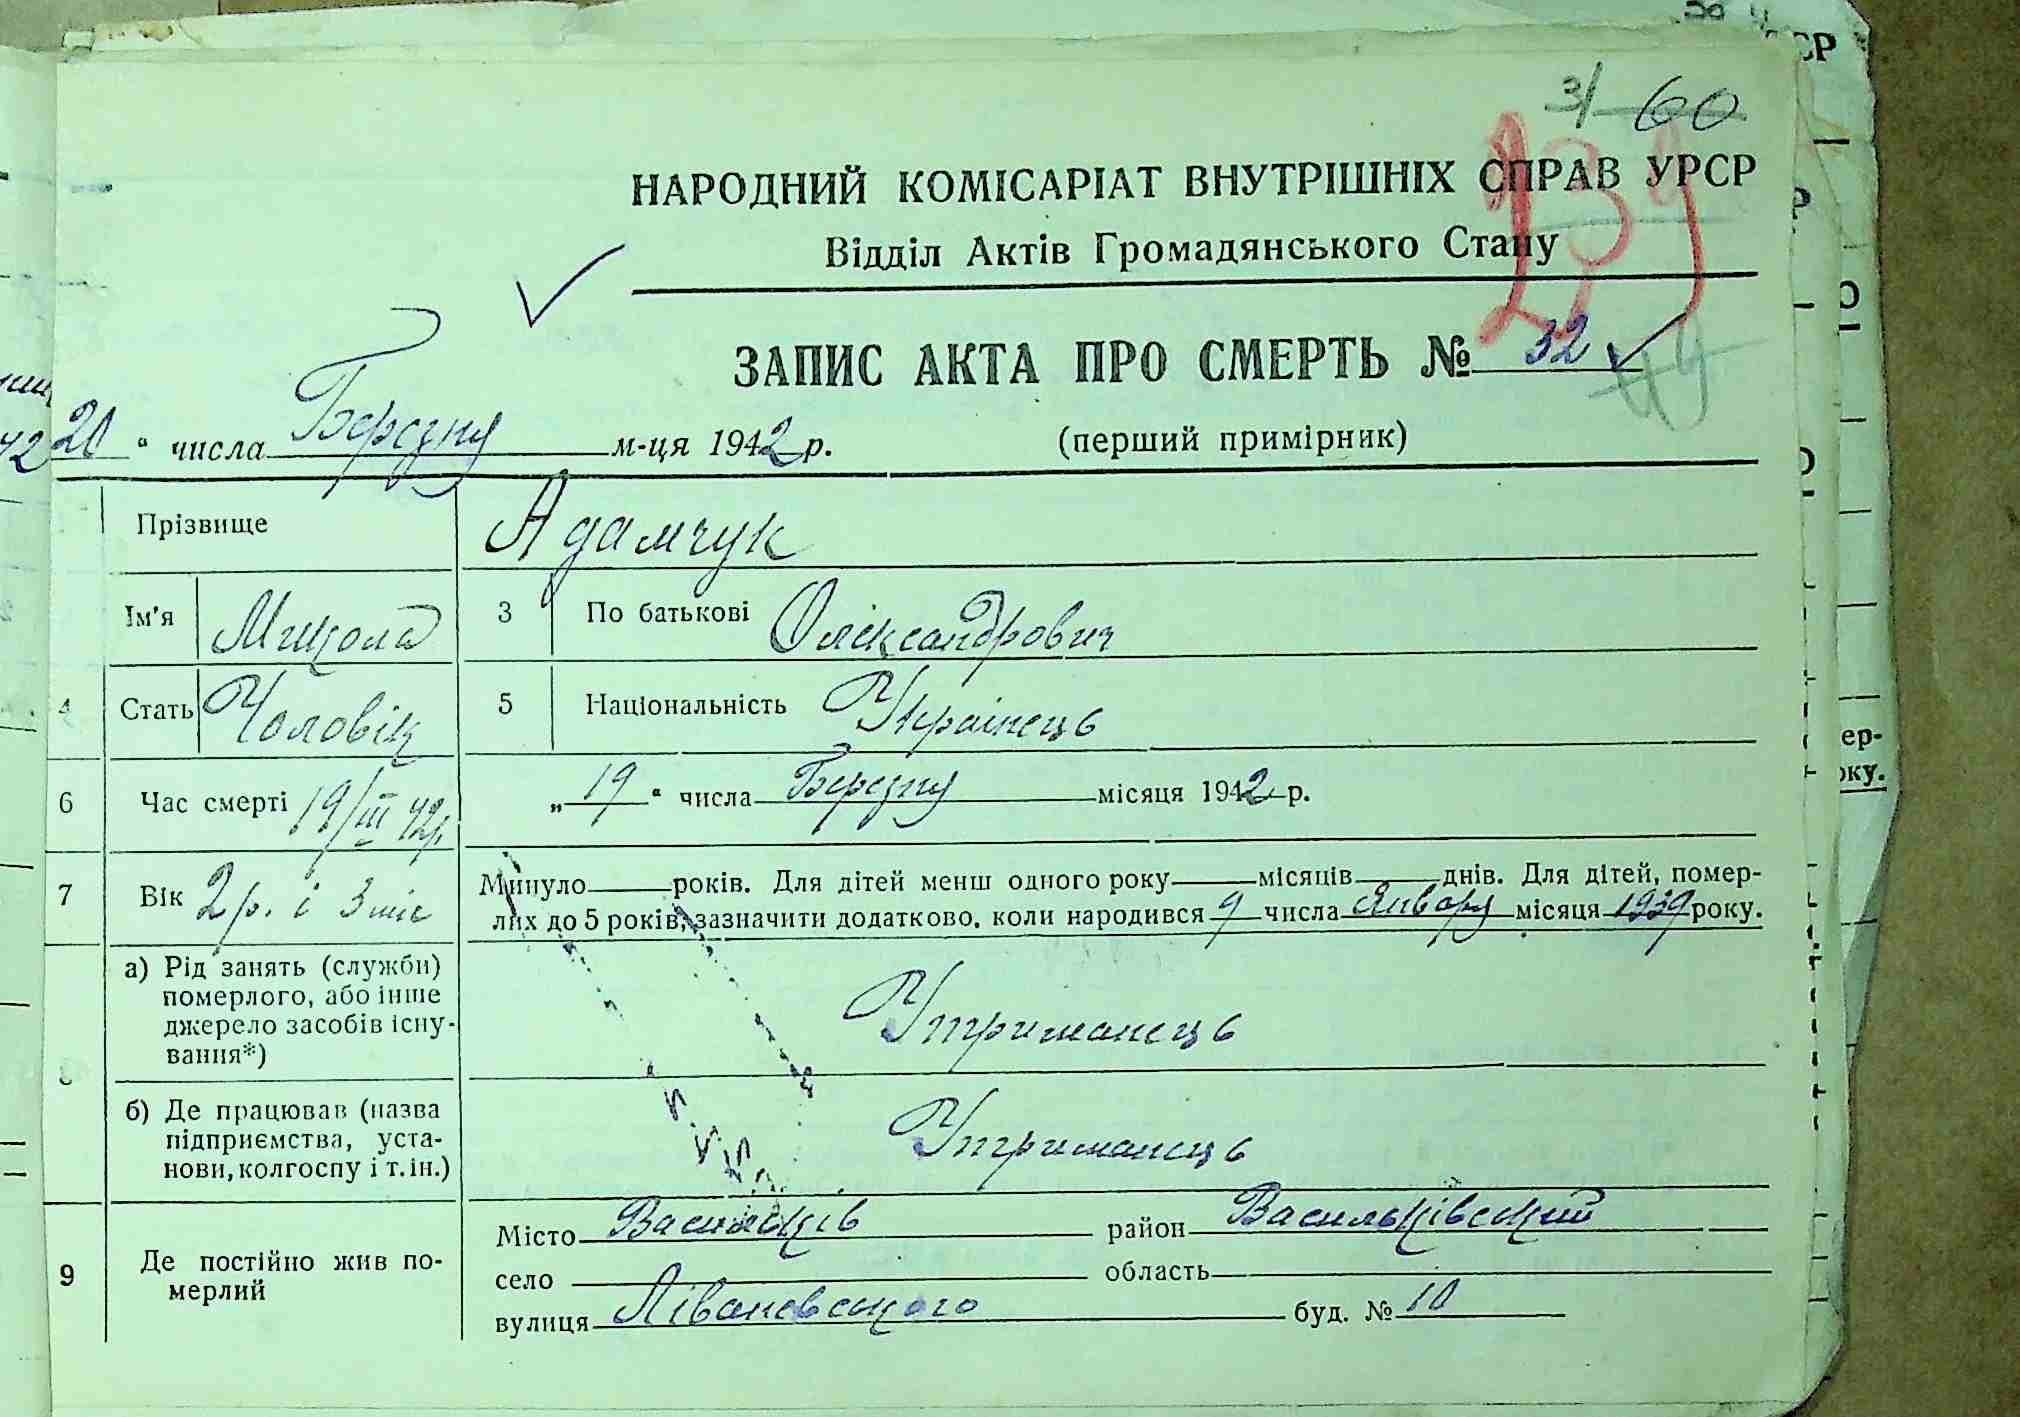 60
239
НАРОДНИЙ КОМІСАРІАТ ВНУТРІШНІХ СПРАВ УРСР
Відділ Актів Громадянського Стану
ЗАПИС АКТА ПРО СМЕРТЬ № 32
20 " числа Березня м-ця 1942 р. (перший примірник)
Прізвище Адамчук
Ім'я Микола 3 По батькові Олександрович
4 Стать Чоловік 5 Національність Українець
6 Час смерті 19/III 42р. „ 19 " числа Березня місяця 1942 р.
7 Вік 2 р. і 3 міс Минуло років. Для дітей менш одного року місяців днів. Для дітей, помер-
лих до 5 років, зазначити додатково, коли народився 9 числа Января місяця 1939 року.
а) Рід занять (служби)
померлого, або інше
джерело засобів існу-
вання*) Утриманець
б) Де працював (назва
підприємства, уста-
нови, колгоспу і т. ін.) Утриманець
9 Де постійно жив по-
мерлий
Місто Васильків район Васильківський
село область
вулиця Лівановського буд. № 10
ер-
оку.